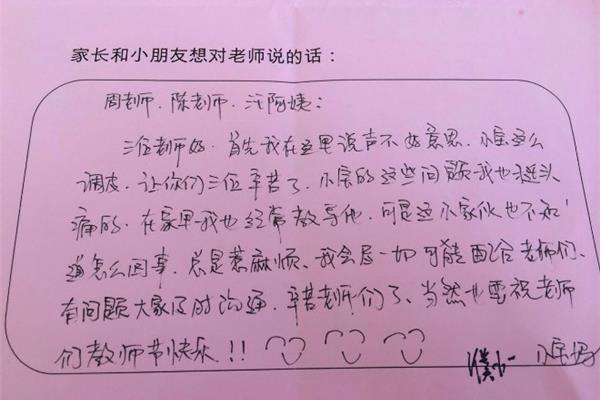 家长和小朋友想对老师说的话：
周老师、陈老师、汪阿姨：
三位老师好。首先我在这里说声不好意思，小宝这么
调皮，让你们三位辛苦了，小宝的这些问题我也挺头
痛的，在家里我也经常教导他，可是这小家伙也不知
道怎么回事，总是惹麻烦、我会尽一切可能配合老师们、
有问题大家及时沟通，辛苦老师们了、当然也要祝老师
们教师节快乐!!!
小宝妈